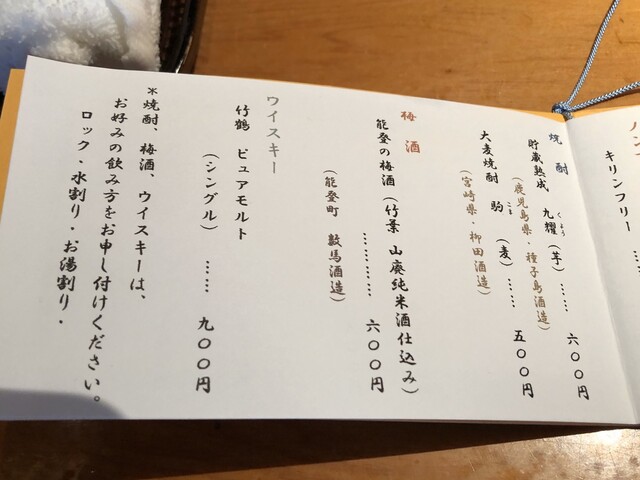 キリンフリー ……
焼酎
貯蔵熟成 九耀（芋）…… 六〇〇円
くよう
（鹿児島県・種子島酒造）
大麦焼酎 駒（麦）…… 五〇〇円
こま
（宮崎県・柳田酒造）
梅酒
能登の梅酒（竹葉 山廃純米酒仕込み）
………… 六〇〇円
（能登町 数馬酒造）
ウイスキー
竹鶴 ピュアモルト
（シングル）…… 九〇〇円
＊焼酎、梅酒、ウイスキーは、
お好みの飲み方をお申し付けください。
ロック・水割り・お湯割り・